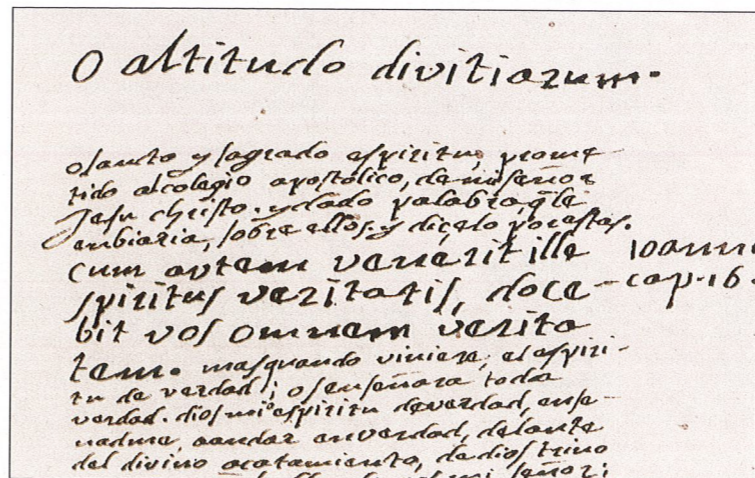 O altitudo divitiarum.
o sancto y sagrado espiritu, prome
tido al colegio apostolico, de mi señor
Jesu christo. y dado palabra, q̃ le
embiaria, sobre ellos. y diçelo por estas.
cum autem venerit ille ioanni
spiritus veritatis, doce- cap. 16.
bit vos omnem verita
tem. mas quando viniere, el espiri-
tu de verdad; os enseñara toda
verdad. dios mio espiritu de verdad, ense-
nadme, a andar en verdad, delante
del divino acatamiento, de dios trino
mi señor;